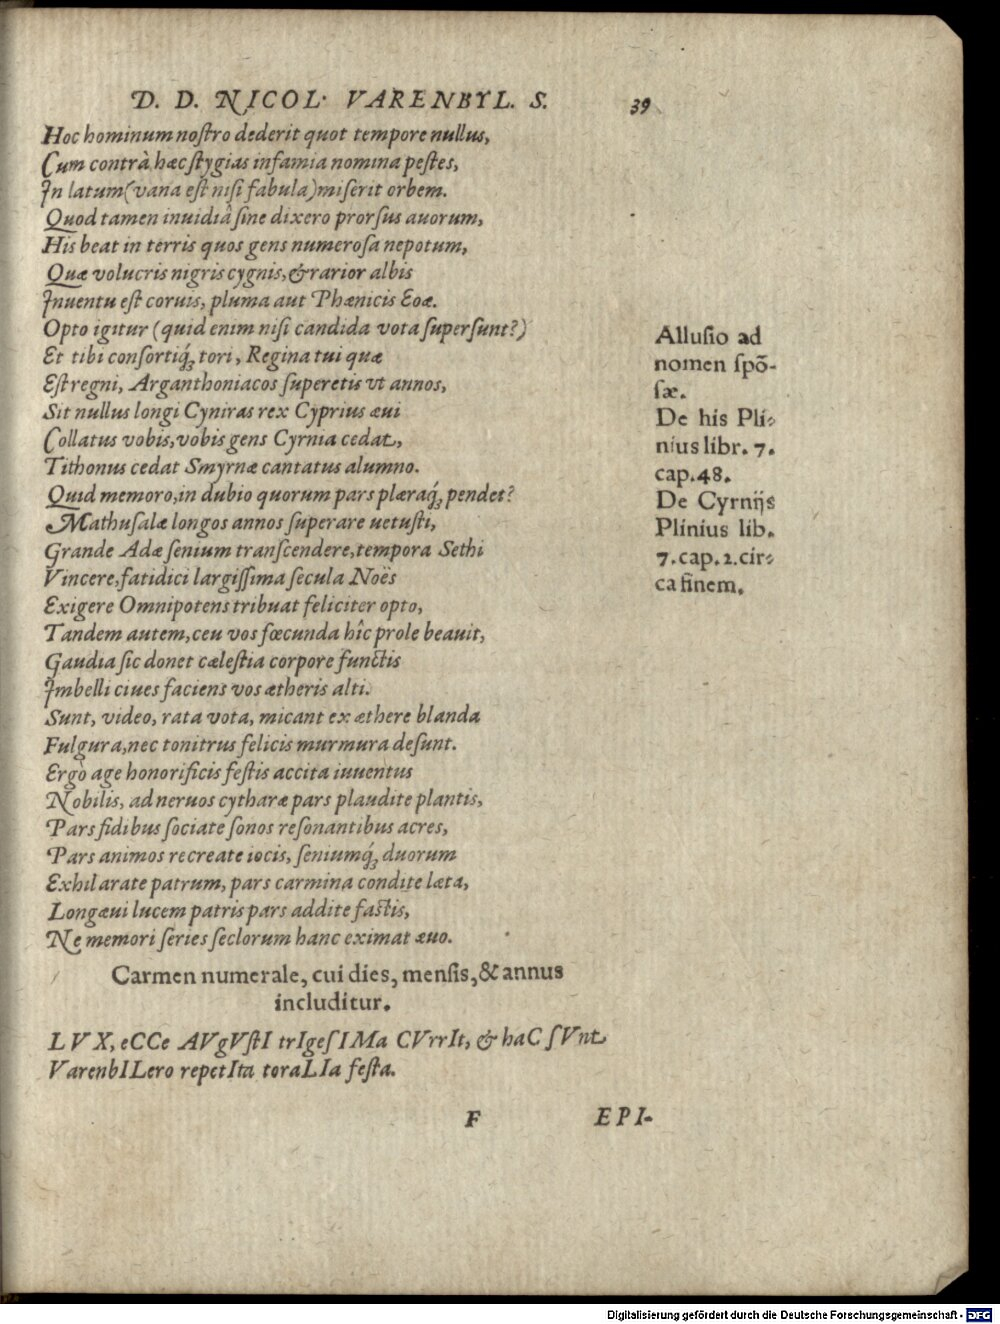 D. D. NICOL. VARENBYL. S. 39
Hoc hominum noſtro dederit quot tempore nullus,
Cum contrà hæc ſtygias infamia nomina peſtes,
In latum (vana eſt niſi fabula) miſerit orbem.
Quod tamen inuidiâ ſine dixero prorſus auorum,
His beat in terris quos gens numeroſa nepotum,
Quæ volucris nigris cygnis, & rarior albis
Inuentu eſt coruis, pluma aut Phœnicis Eoæ.
Opto igitur (quid enim niſi candida vota ſuperſunt?)
Et tibi conſortiq́ꝫ tori, Regina tui quæ
Eſt regni, Arganthoniacos ſuperetis vt annos,
Sit nullus longi Cyniras rex Cyprius æui
Collatus vobis, vobis gens Cyrnia cedat,
Tithonus cedat Smyrnæ cantatus alumno.
Quid memoro, in dubio quorum pars plæraq́ꝫ pendet?
Mathuſalæ longos annos ſuperare uetuſti,
Grande Adæ ſenium tranſcendere, tempora Sethi
Vincere, fatidici largiſſima ſecula Noës
Exigere Omnipotens tribuat feliciter opto,
Tandem autem, ceu vos fœcunda hîc prole beauit,
Gaudia ſic donet cæleſtia corpore functis
Imbelli ciues faciens vos ætheris alti.
Sunt, video, rata vota, micant ex æthere blanda
Fulgura, nec tonitrus felicis murmura deſunt.
Ergò age honorificis feſtis accita iuuentus
Nobilis, ad neruos cytharæ pars plaudite plantis,
Pars fidibus ſociate ſonos reſonantibus acres,
Pars animos recreate iocis, ſeniumq́ꝫ duorum
Exhilarate patrum, pars carmina condite læta,
Longæui lucem patris pars addite faſtis,
Ne memori ſeries ſeclorum hanc eximat æuo.
Alluſio ad
nomen ſpõ-
ſæ.
De his Pli-
nius libr. 7.
cap. 48.
De Cyrnijs
Plinius lib.
7. cap. 2. cir-
ca finem.
Carmen numerale, cui dies, menſis, & annus
includitur.
LVX, eCCe AVgVſtI trIgeſIMa CVrrIt, & haC ſVnt
VarenbILero repetIta toraLIa feſta.
F EPI-
Digitalisierung gefördert durch die Deutsche Forschungsgemeinschaft - DFG